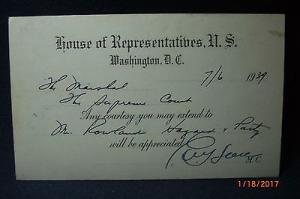 House of Representatives, U. S.
Washington, D. C.
7/6 1939
The Marshal
The Supreme Court
Any courtesy you may extend to
Mr. Rowland Hazard & Party
will be appreciated
M.C.
1/18/2017